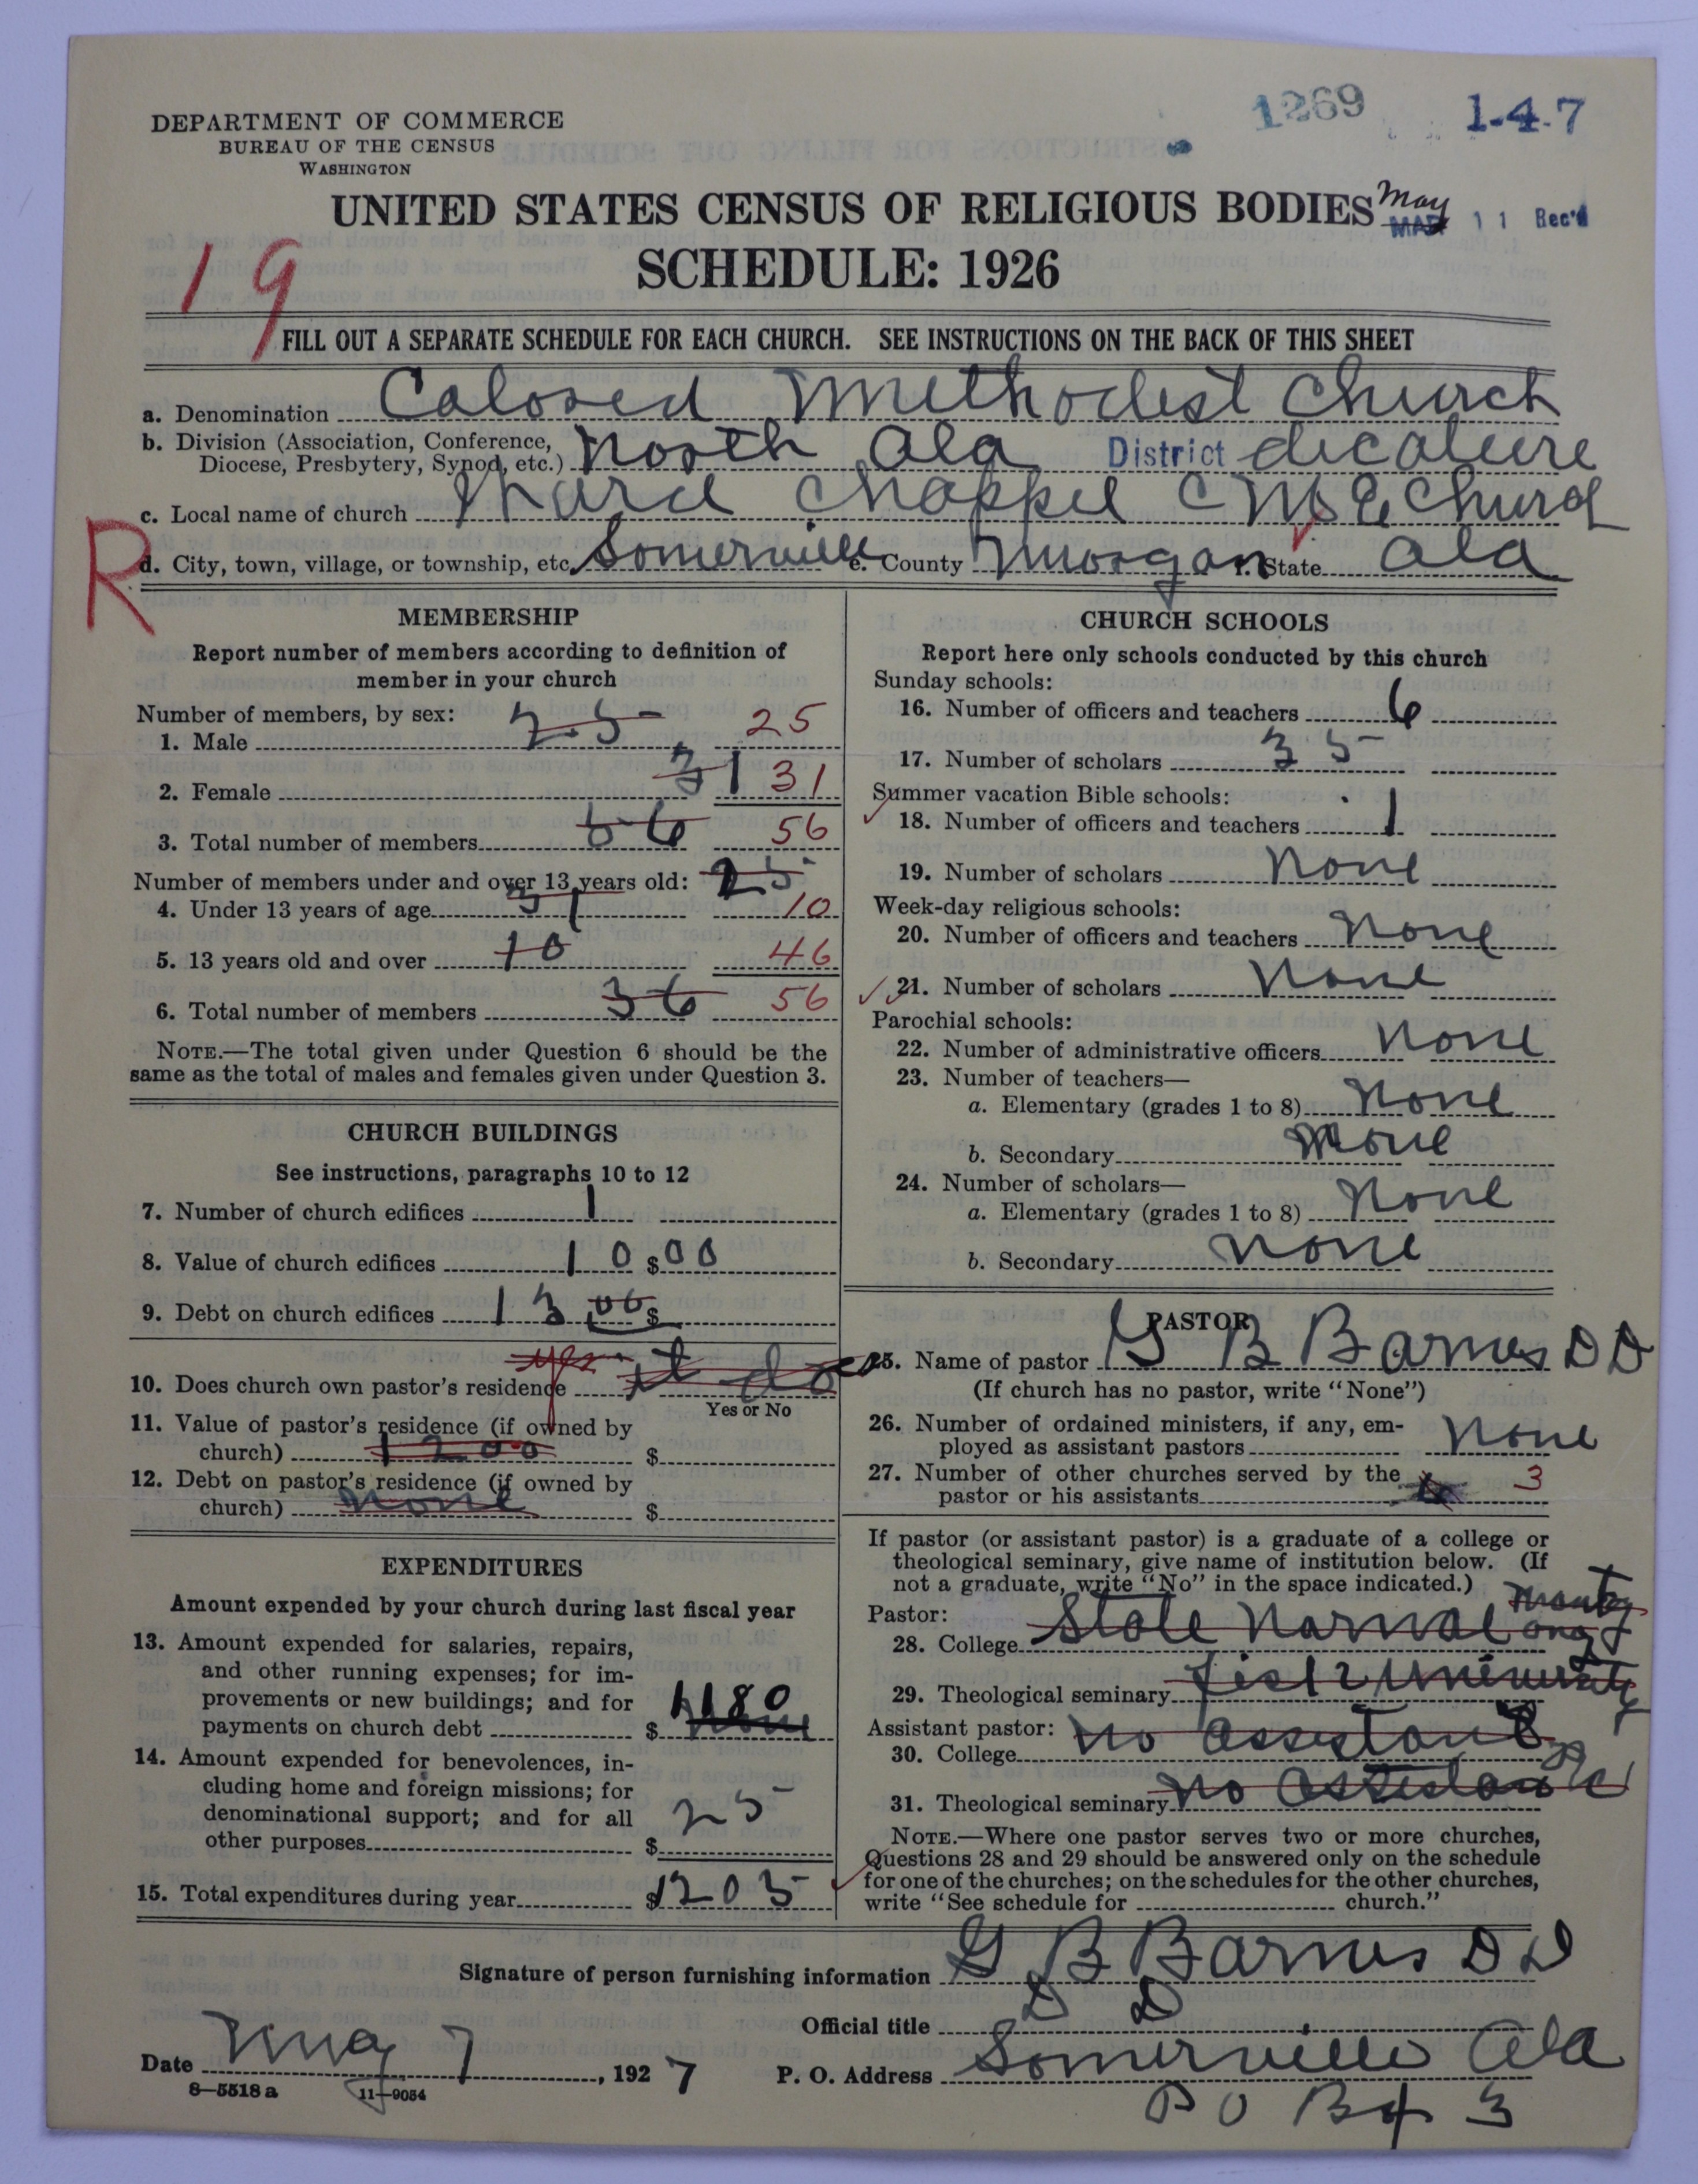 DEPARTMENT OF COMMERCE
BUREAU OF THE CENSUS
WASHINGTON
1269
1-4-7
UNITED STATES CENSUS OF RELIGIOUS BODIES
May
MAR 11 Rec'd
SCHEDULE: 1926
19
FILL OUT A SEPARATE SCHEDULE FOR EACH CHURCH. SEE INSTRUCTIONS ON THE BACK OF THIS SHEET
a. Denomination Colored Methodist Church
b. Division (Association, Conference, Diocese, Presbytery, Synod, etc.) North Ala District dicature
c. Local name of church Chappel C M E Church
R
d. City, town, village, or township, etc. Somerville e. County Morgan f. State Ala
MEMBERSHIP
Report number of members according to definition of
member in your church
Number of members, by sex:
1. Male 25 25
2. Female 31 31
3. Total number of members 56 56
Number of members under and over 13 years old: 25
4. Under 13 years of age 31 10
5. 13 years old and over 10 46
6. Total number of members 36 56
NOTE.—The total given under Question 6 should be the
same as the total of males and females given under Question 3.
CHURCH BUILDINGS
See instructions, paragraphs 10 to 12
7. Number of church edifices 1
8. Value of church edifices 10 $ 00
9. Debt on church edifices 13 00 $
10. Does church own pastor's residence yes it does
Yes or No
11. Value of pastor's residence (if owned by
church) 1200 $
12. Debt on pastor's residence (if owned by
church) none $
EXPENDITURES
Amount expended by your church during last fiscal year
13. Amount expended for salaries, repairs,
and other running expenses; for im-
provements or new buildings; and for
payments on church debt $ 1180 none
14. Amount expended for benevolences, in-
cluding home and foreign missions; for
denominational support; and for all
other purposes $ 25
15. Total expenditures during year $ 1205
CHURCH SCHOOLS
Report here only schools conducted by this church
Sunday schools:
16. Number of officers and teachers 6
17. Number of scholars 35
Summer vacation Bible schools:
18. Number of officers and teachers 1
19. Number of scholars None
Week-day religious schools:
20. Number of officers and teachers None
21. Number of scholars None
Parochial schools:
22. Number of administrative officers None
23. Number of teachers—
a. Elementary (grades 1 to 8) None
b. Secondary None
24. Number of scholars—
a. Elementary (grades 1 to 8) None
b. Secondary None
PASTOR
25. Name of pastor G B Barnes D D
(If church has no pastor, write "None")
26. Number of ordained ministers, if any, em-
ployed as assistant pastors None
27. Number of other churches served by the
pastor or his assistants 3
If pastor (or assistant pastor) is a graduate of a college or
theological seminary, give name of institution below. (If
not a graduate, write "No" in the space indicated.)
Pastor:
28. College State Normal
29. Theological seminary University
Assistant pastor:
30. College No assistant
31. Theological seminary No assistant
NOTE.—Where one pastor serves two or more churches,
Questions 28 and 29 should be answered only on the schedule
for one of the churches; on the schedules for the other churches,
write "See schedule for church."
Signature of person furnishing information G B Barnes D D
Official title D D
Date May 7, 1927
P. O. Address Somerville Ala
P O Bx 3
8—5518 a
11—9054